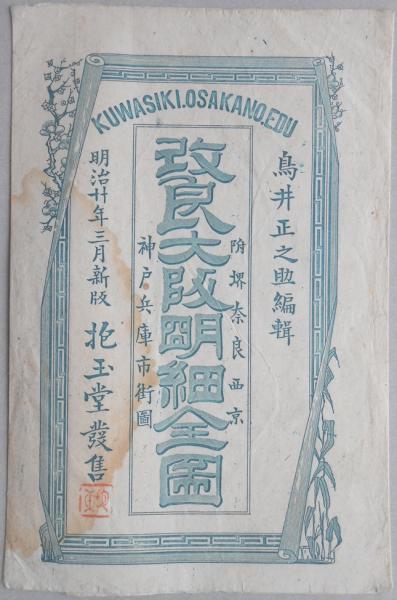 KUWASIKI.OSAKANO.EDU
鳥井正之助編輯
附堺奈良西京
改良大阪明細全圖
神戸兵庫市街圖
明治廿年三月新版
抱玉堂發售